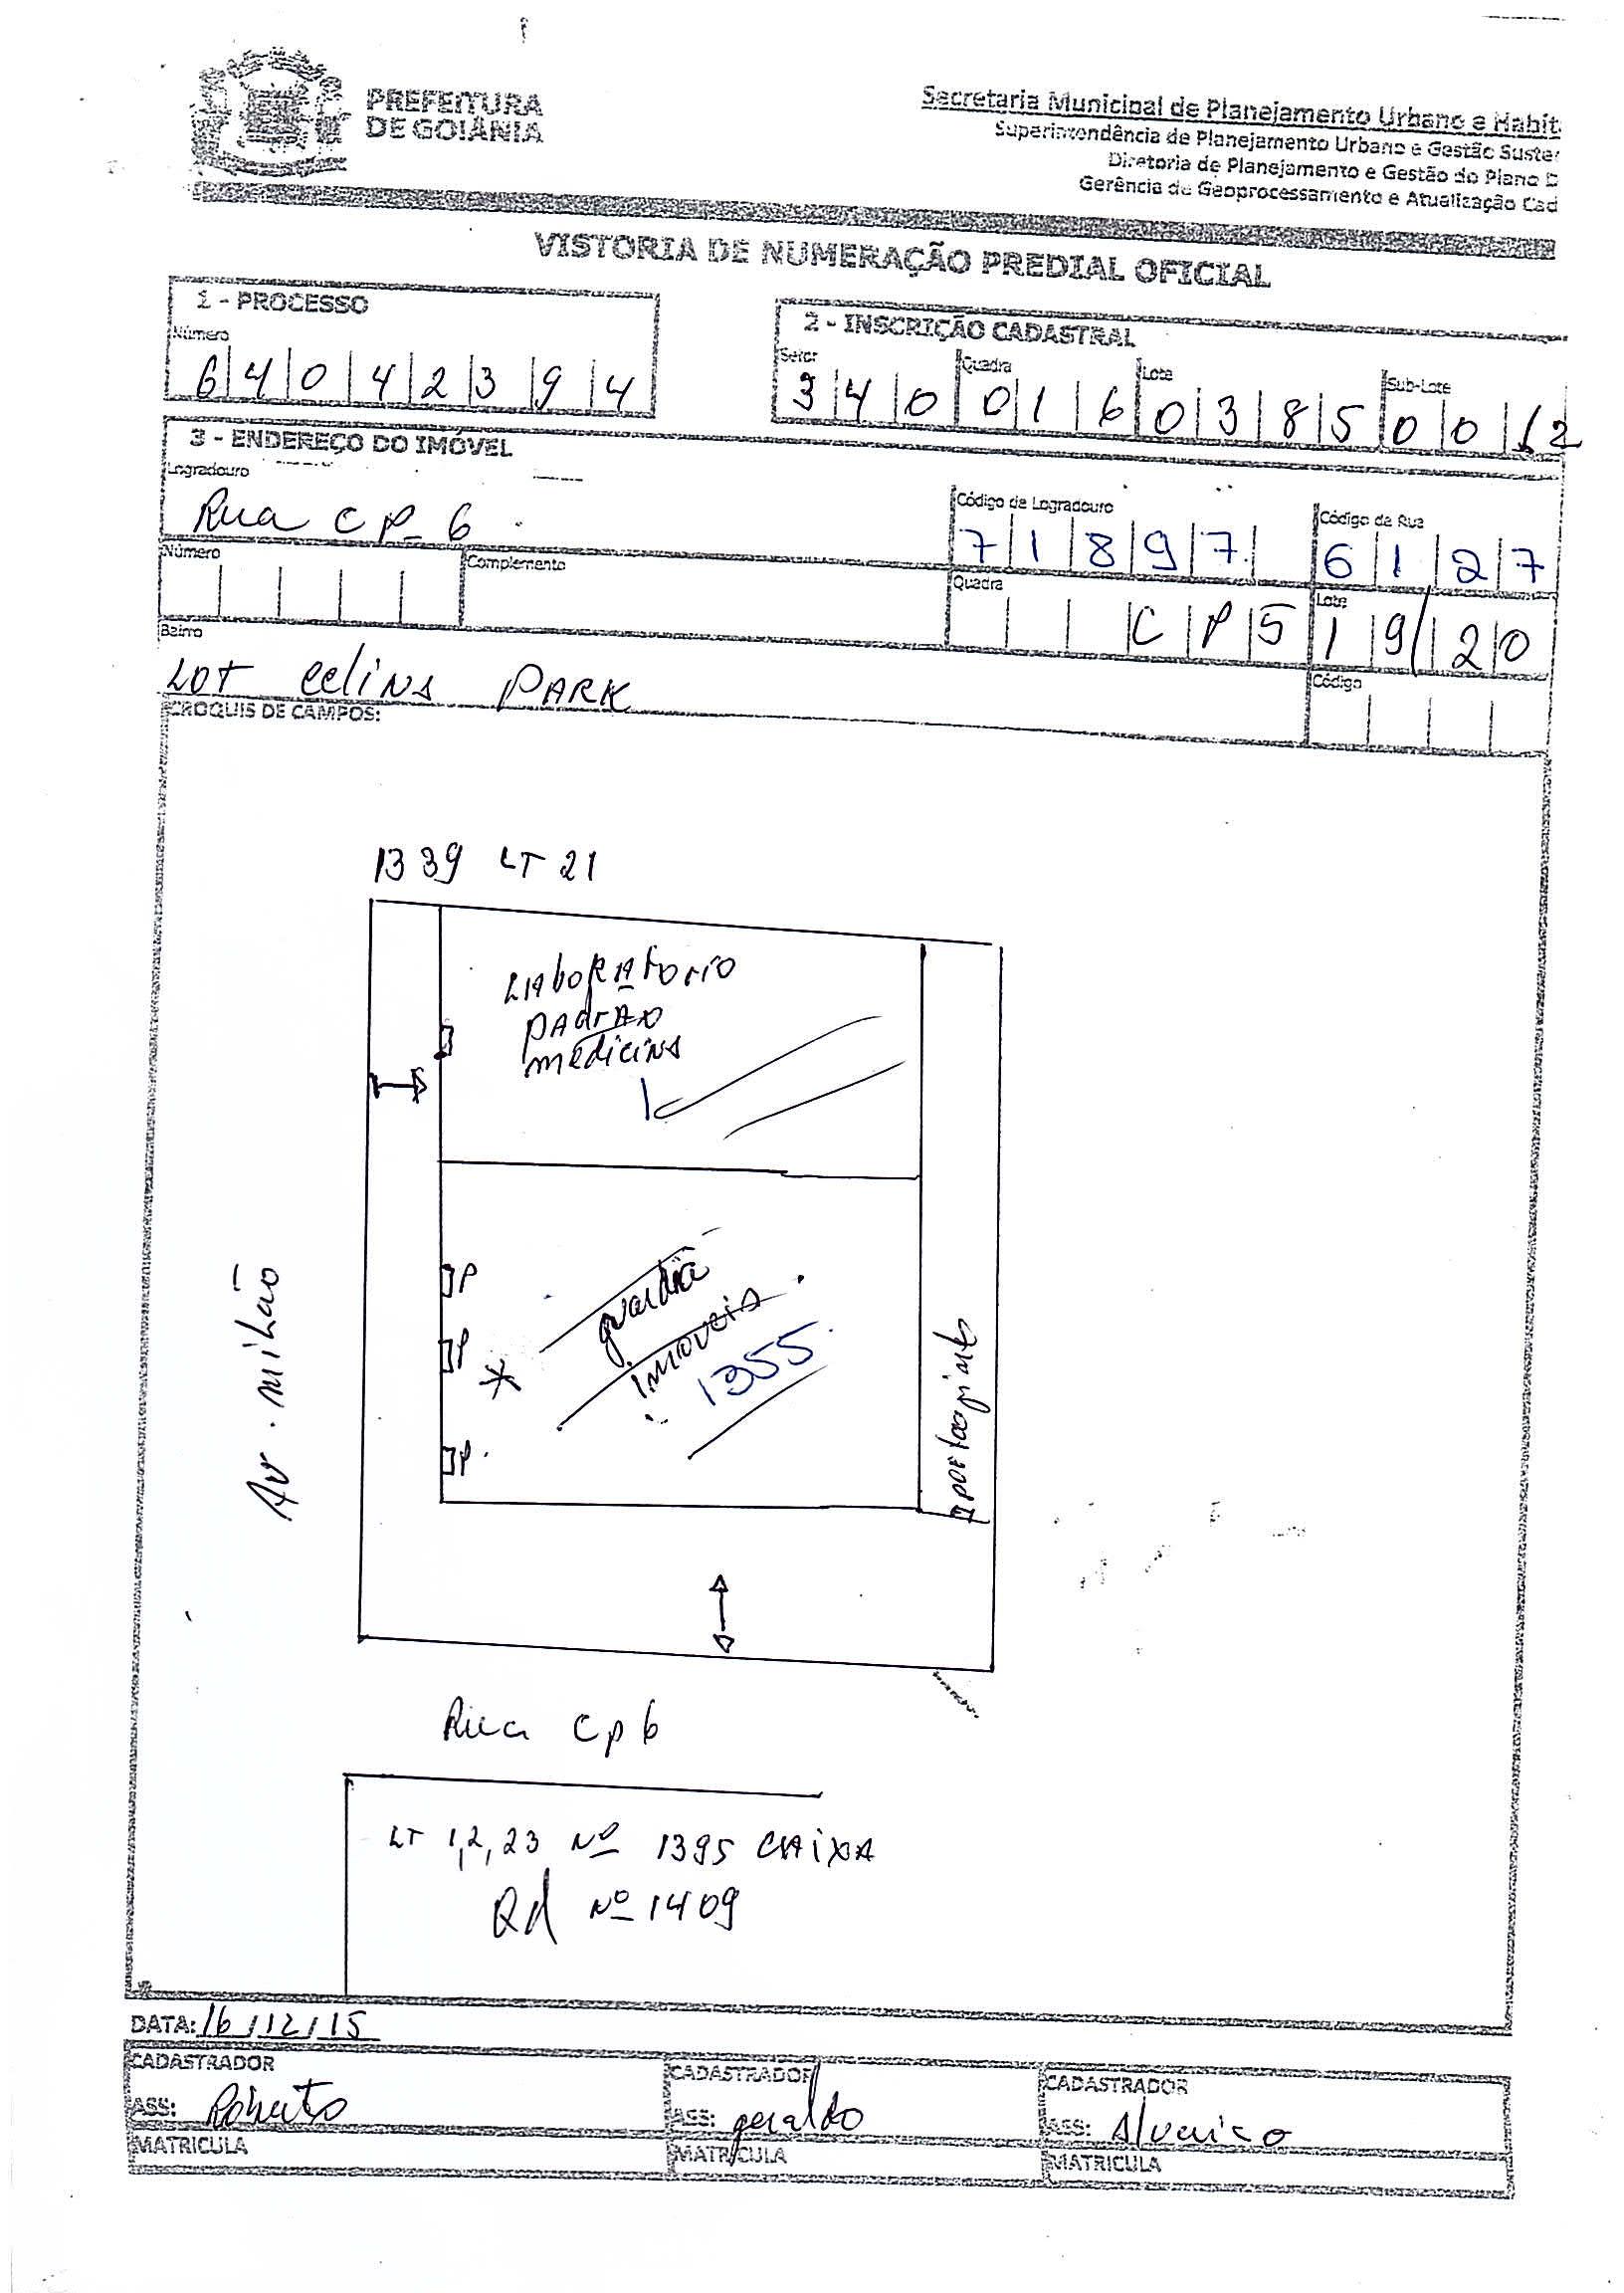 PREFEITURA
DE GOIÂNIA
Secretaria Municipal de Planejamento Urbano e Habit
Superintendência de Planejamento Urbano e Gestão Suster
Diretoria de Planejamento e Gestão do Plano D
Gerência de Geoprocessamento e Atualização Cad
VISTORIA DE NUMERAÇÃO PREDIAL OFICIAL
1 - PROCESSO
Número
6 4 0 4 2 3 9 4
2 - INSCRIÇÃO CADASTRAL
Setor Quadra Lote Sub-Lote
3 4 0 0 1 6 0 3 8 5 0 0 12
3 - ENDEREÇO DO IMÓVEL
Logradouro
Rua CP-6
Código de Logradouro
7 1 8 9 7
Código da Rua
6 1 2 7
Número
Complemento
Quadra
C P 5
Lote
19/20
Bairro
LOT Celina PARK
Código
CROQUIS DE CAMPOS:
1339 LT 21
Laboratorio
padrão
medicina
guardiã
imoveis
1355
P
P
P
Av. milão
Rua Cp6
LT 1,2,23 Nº 1395 CAIXA
Qd Nº 1409
DATA: 16/12/15
CADASTRADOR
ASS: Roberto
MATRICULA
CADASTRADOR
ASS: geraldo
MATRICULA
CADASTRADOR
ASS:
MATRICULA